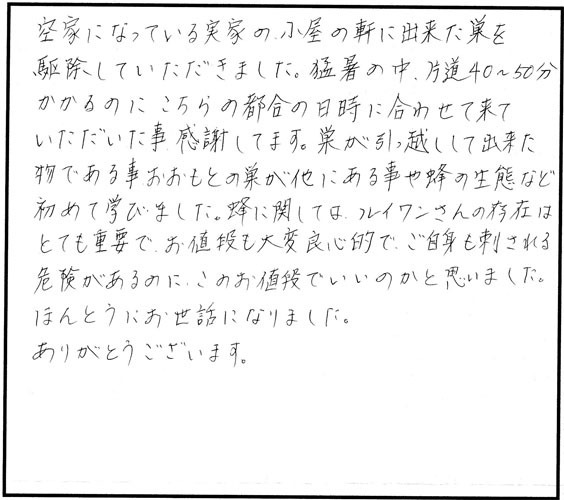 空家になっている実家の、小屋の軒に出来た巣を
駆除していただきました。猛暑の中、片道40～50分
かかるのにこちらの都合の日時に合わせて来て
いただいた事感謝してます。巣が引っ越しして出来た
物である事おおもとの巣が他にある事や蜂の生態など
初めて学びました。蜂に関しては、フルイワンさんの存在は
とても重要で、お値段も大変良心的で、ご自身も刺される
危険があるのに、このお値段でいいのかと思いました。
ほんとうにお世話になりました。
ありがとうございます。